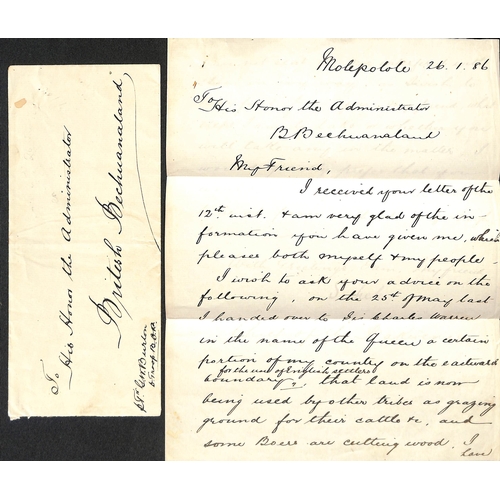 To
His Honor the Administrator
British Bechuanaland
Molepolole 26.1.86
To
His Honor the Administrator
B. Bechuanaland
My Friend,
I received your letter of the
12th inst. & am very glad of the in-
formation you have given me, which
pleases both myself & my people -
I wish to ask your advice on the
following, on the 25th of May last
I handed over to Sir Charles Warren
in the name of the Queen a certain
portion of my country on the eastward
for the use of English settlers
boundary, that land is now
being used by other tribes as grazing
ground for their cattle &c, and
some Boers are cutting wood. I